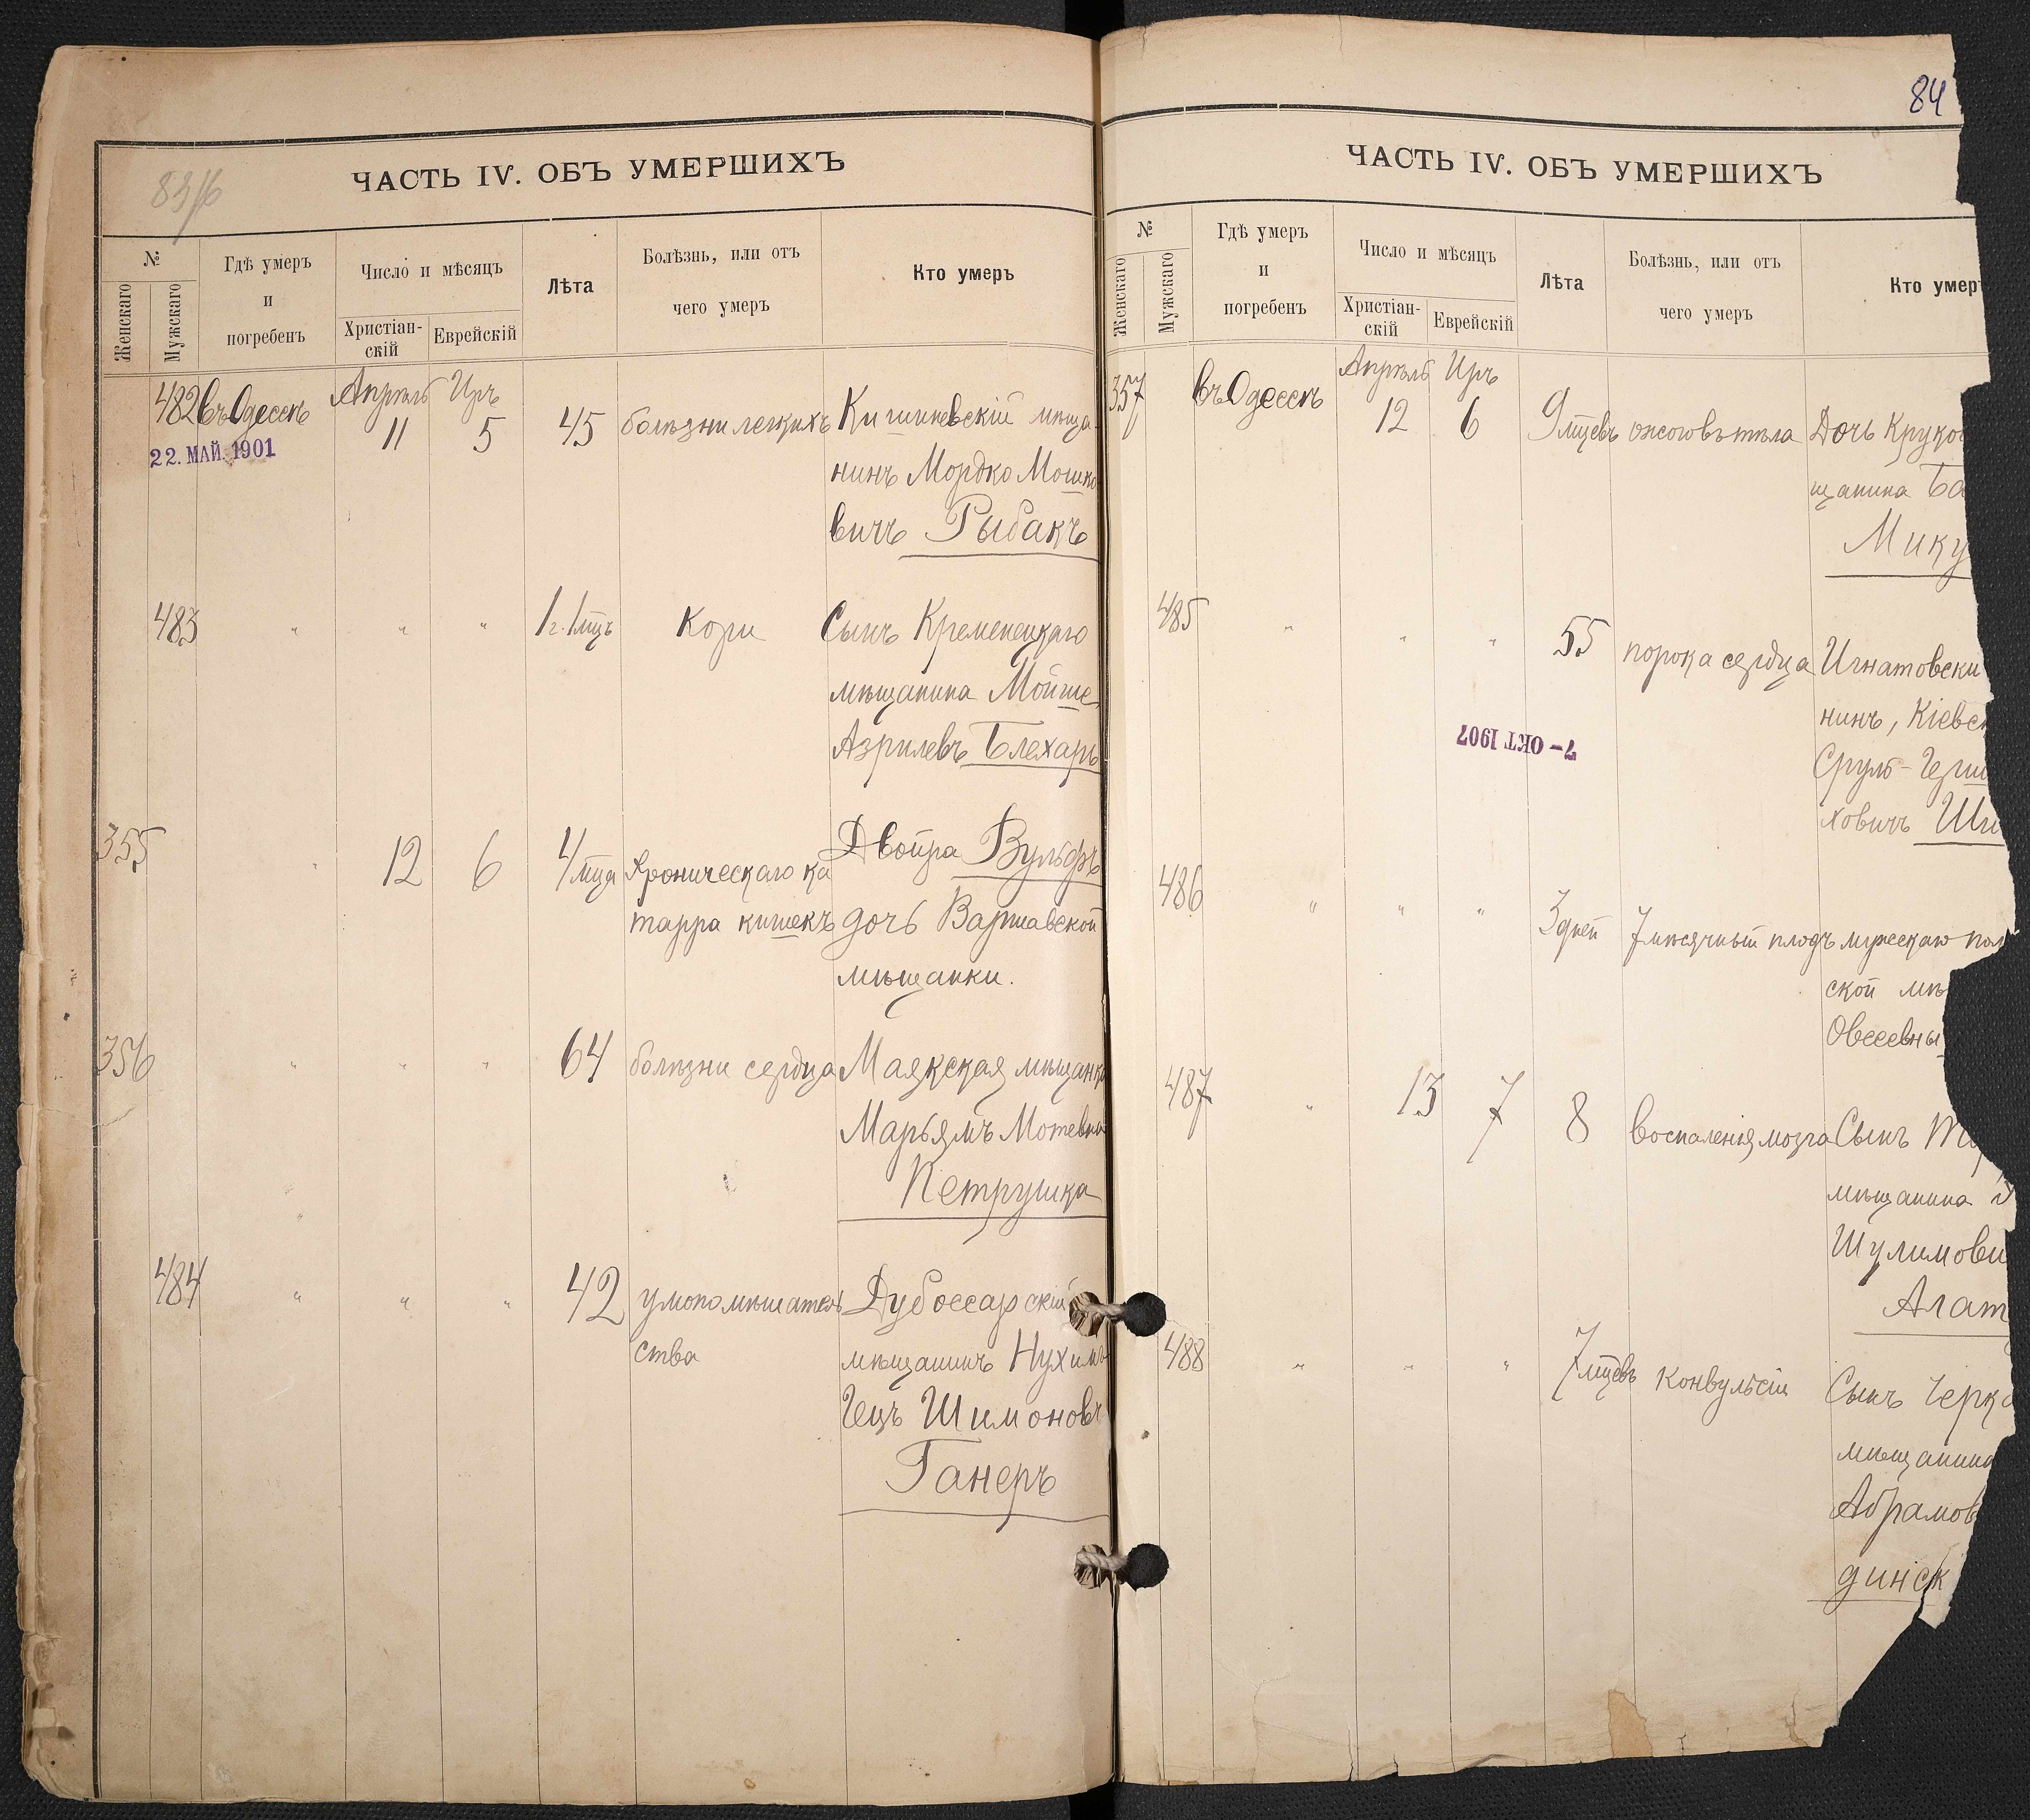 83/б
ЧАСТЬ IV. ОБЪ УМЕРШИХЪ
№
Женскаго
Мужскаго
Гдѣ умеръ
и
погребенъ
Число и мѣсяцъ
Христіан-
скій
Еврейскій
Лѣта
Болѣзнь, или отъ
чего умеръ
Кто умеръ
482 въ Одессѣ Апрѣль 11 Иръ 5 45 болѣзни легкихъ Кишиневскій мѣща-
22. МАЙ. 1901
нинъ Мордко Мошко
вичъ Рыбакъ
483 " " " 1 г. 1 мцъ Кори Сынъ Кременецкаго
мѣщанина Мойше
Азрилевъ Блехаръ
355 " 12 6 4 мца Хроническаго ка Двойра Вульфъ
тарра кишекъ дочь Варшавской
мѣщанки.
356 " " " 64 болѣзни сердца Маякская мѣщанка
Марьямъ Мотевна
Петрушка
484 " " " 42 умопомѣшатель Дубоссарскій
ства мѣщанинъ Нухимъ
Гецъ Шимоновъ
Ганеръ
84
ЧАСТЬ IV. ОБЪ УМЕРШИХЪ
№
Женскаго
Мужскаго
Гдѣ умеръ
и
погребенъ
Число и мѣсяцъ
Христіан-
скій
Еврейскій
Лѣта
Болѣзнь, или отъ
чего умеръ
Кто умер
357 въ Одессѣ Апрѣль 12 Иръ 6 9 мцевъ ожоговъ тѣла Дочь Круко
щанина Ба
Мику
485 " " " 55 порока сердца Игнатовски
нинъ, Кіевс
7 - ОКТ 1907
Сруль-Герш
ховичъ Ши
486 " " " 3 дней 7 мѣсячный плодъ мужескаго пол
ской мѣ
Овсеевны
487 " 13 7 8 воспаленія мозга Сынъ
мѣщанина
Шулимови
Агат
488 " " " 7 мцевъ конвульсіи Сынъ Черка
мѣщанина
Абрамов
динск